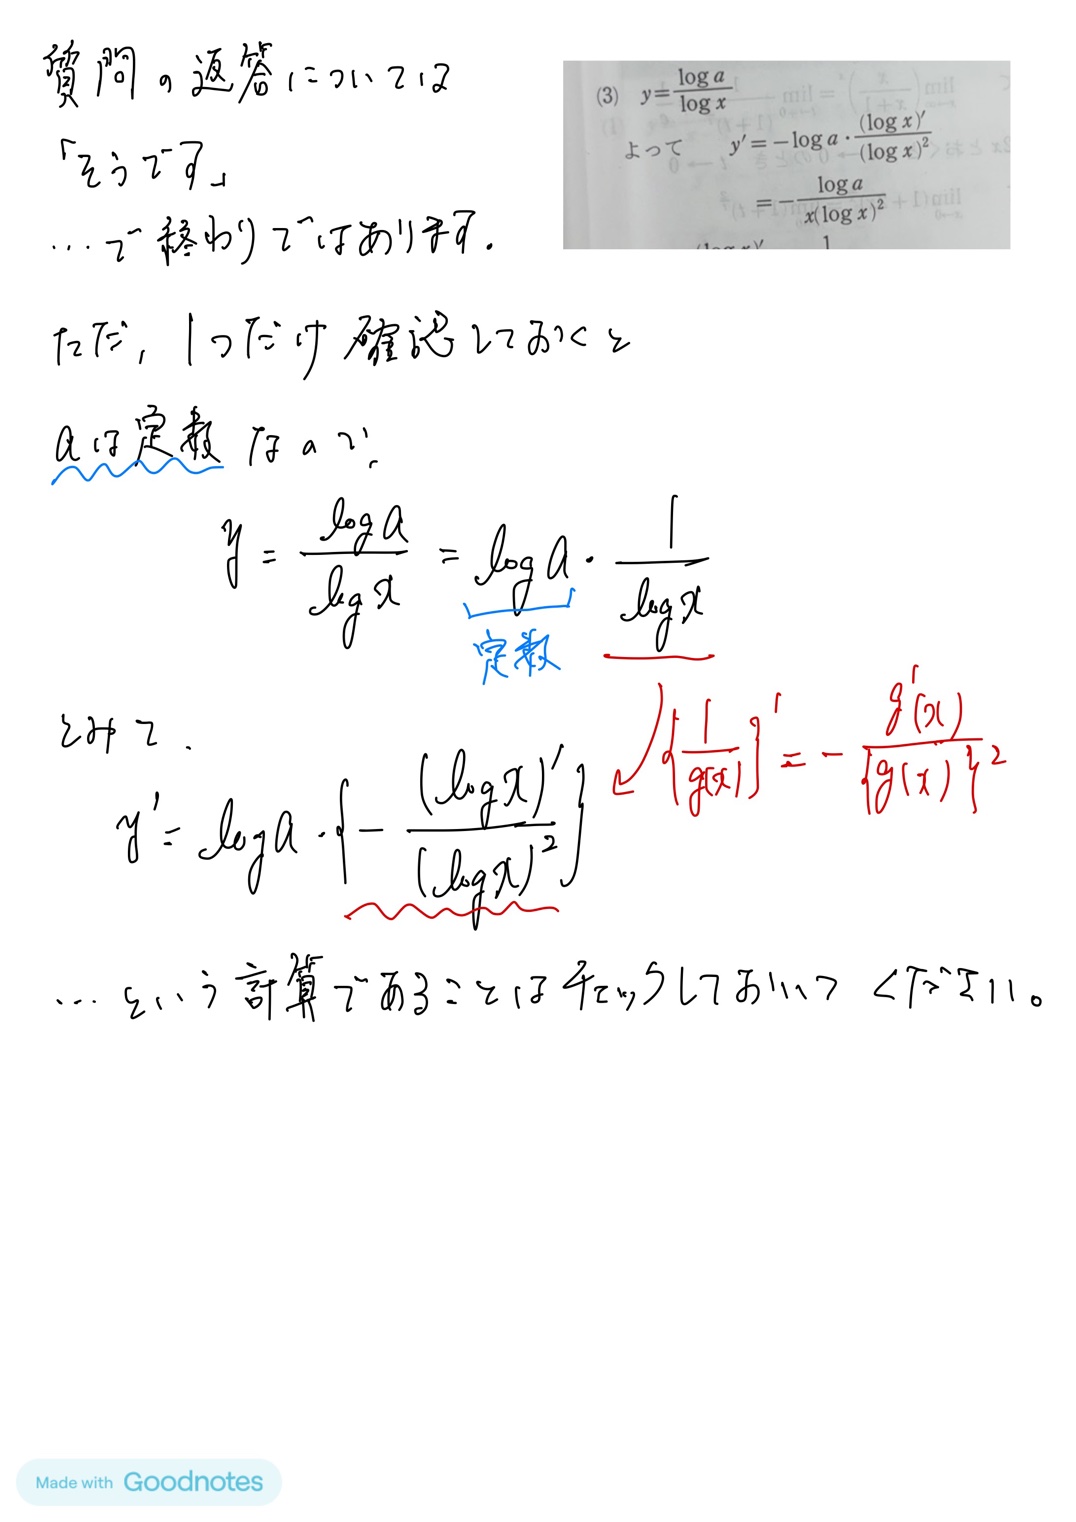 質問の返答については
「そうです」
…で終わりではあります.
(3) y=log a/log x
よって y′=−log a・(log x)′/(log x)²
=−log a/x(log x)²
ただ, 1つだけ確認しておくと
aは定数なので,
y = log a/log x = log a・1/log x
定数
とみて,
{1/g(x)}′ = − g′(x)/{g(x)}²
y′= log a・{− (log x)′/(log x)²}
…という計算であることはチェックしておいてください。
Made with Goodnotes